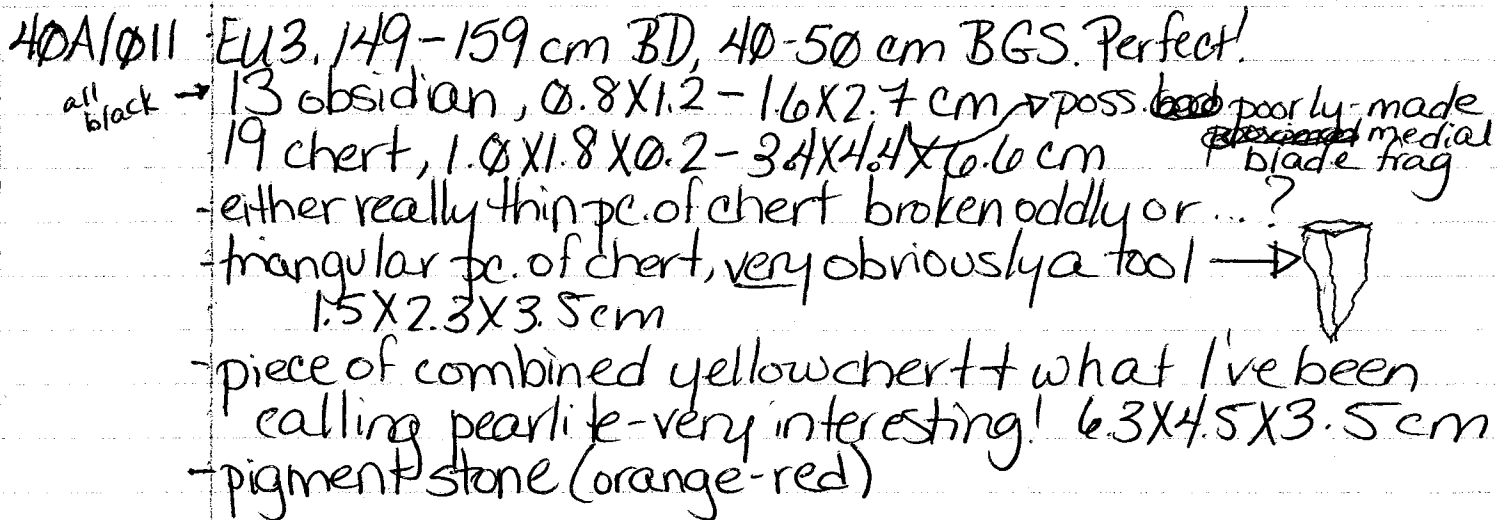 40A/011 EU3. 149-159 cm BD, 40-50 cm BGS. Perfect!
all black → 13 obsidian, 0.8X1.2 - 1.6X2.7 cm → poss. poorly-made
19 chert, 1.0X1.8X0.2 - 3.4X4.4X6.6 cm medial
blade frag
- either really thin pc. of chert broken oddly or ...?
- triangular pc. of chert, very obviously a tool →
1.5X2.3X3.5cm
- piece of combined yellow chert + what I've been
calling pearlite - very interesting! 6.3X4.5X3.5cm
- pigment stone (orange-red)